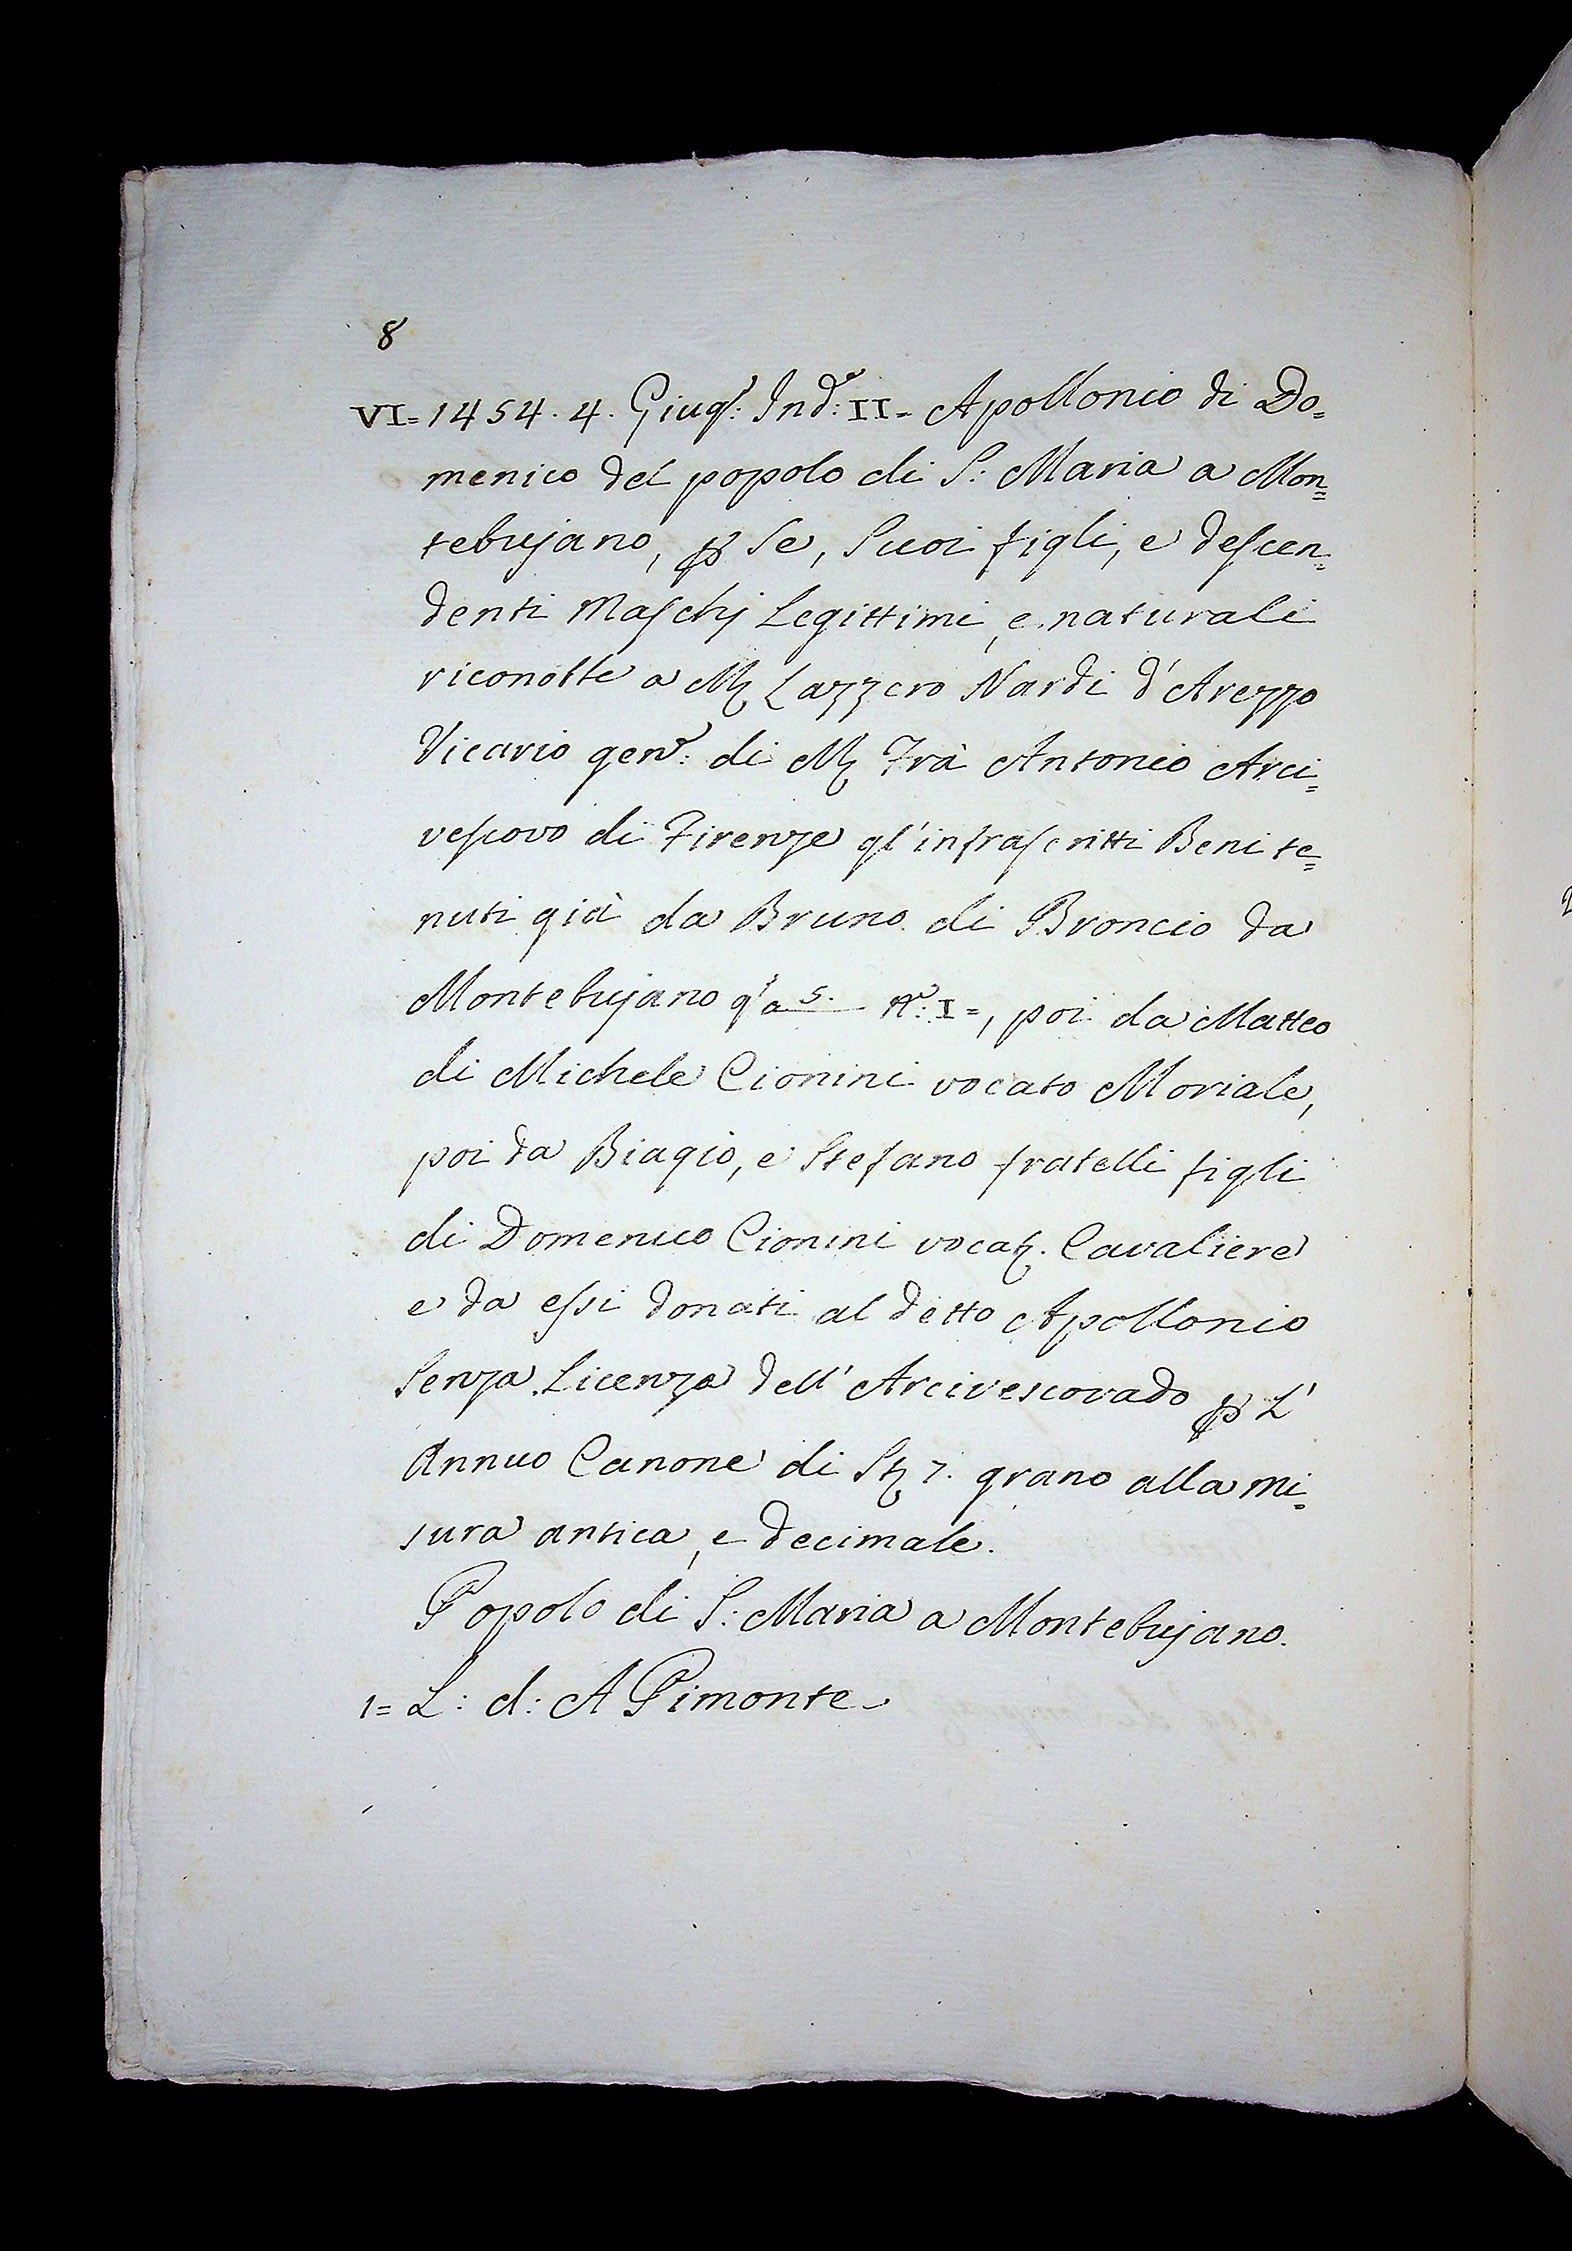 8
VI=1454. 4. Giug: Ind: II= Apollonio di Do=
menico del popolo di S: Maria a Mon=
tebujano, p Se, Suoi figli, e descen=
denti Maschj Legittimi, e naturali
riconobbe a M Lazzero Nardi d'Arezzo
Vicario gen: di M Frà Antonio Arci=
vescovo di Firenze gl'infrascritti Beni te=
nuti già da Bruno di Broncio da
Montebujano qᵃ 5. N: I=, poi da Matteo
di Michele Cionini vocato Moriale,
poi da Biagio, e Stefano fratelli figli
di Domenico Cionini vocat. Cavaliere
e da essi donati al detto Apollonio
Senza Licenza dell'Arcivescovado p L'
Annuo Canone di St 7. grano alla mi=
sura antica, e decimale.
Popolo di S: Maria a Montebujano.
1= L: d: A Pimonte